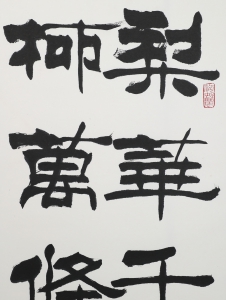 梨華千
柳萬條